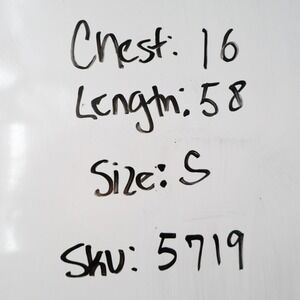 Chest: 16
Length: 58
Size: S
SKU: 5719